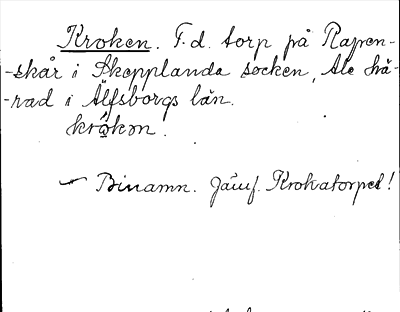 Kroken. F.d. torp på Rapen-
-skår i Skepplanda socken, Ale hä-
-rad i Älfsborgs län.
krökən.
Binamn. Jämf. Krokatorpet!